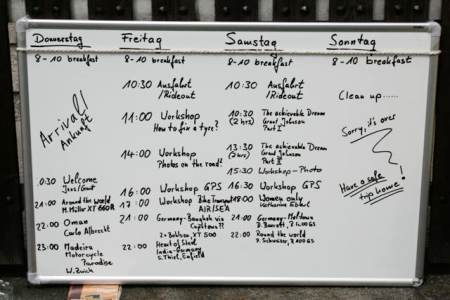 Donnerstag
8-10 breakfast
Arrival!
Ankunft
Welcome
Jens/Grant
21:00 Around the world
M. Müller XT 660R
22:00 Oman
Carlo Albrecht
23:00 Madeira
Motorcycle
Paradise
W. Zwick
Freitag
8-10 breakfast
10:30 Ausfahrt
/Rideout
11:00 Workshop
How to fix a tyre?
14:00 Workshop
Photos on the road!
16:00 Workshop GPS
17:00 Workshop Bike Transport
AIR/SEA
21:00 Germany-Bangkok via
Capetown??
2x XT 500
22:00 Heart of Steel
India-Germany
S. Thiel, Enfield
Samstag
8-10 breakfast
10:30 Ausfahrt
/Rideout
10:30 The achievable Dream
(2hrs) Grant Johnson
Part I
13:30 The achievable Dream
(2hrs) Grant Johnson
Part II
15:30 Workshop-Photo
16:30 Workshop GPS
18:00 Women only
21:00 Germany-
22:00 Round the world
Sonntag
8-10 breakfast
Clean up.....
Sorry, it's over
Have a safe
trip home!